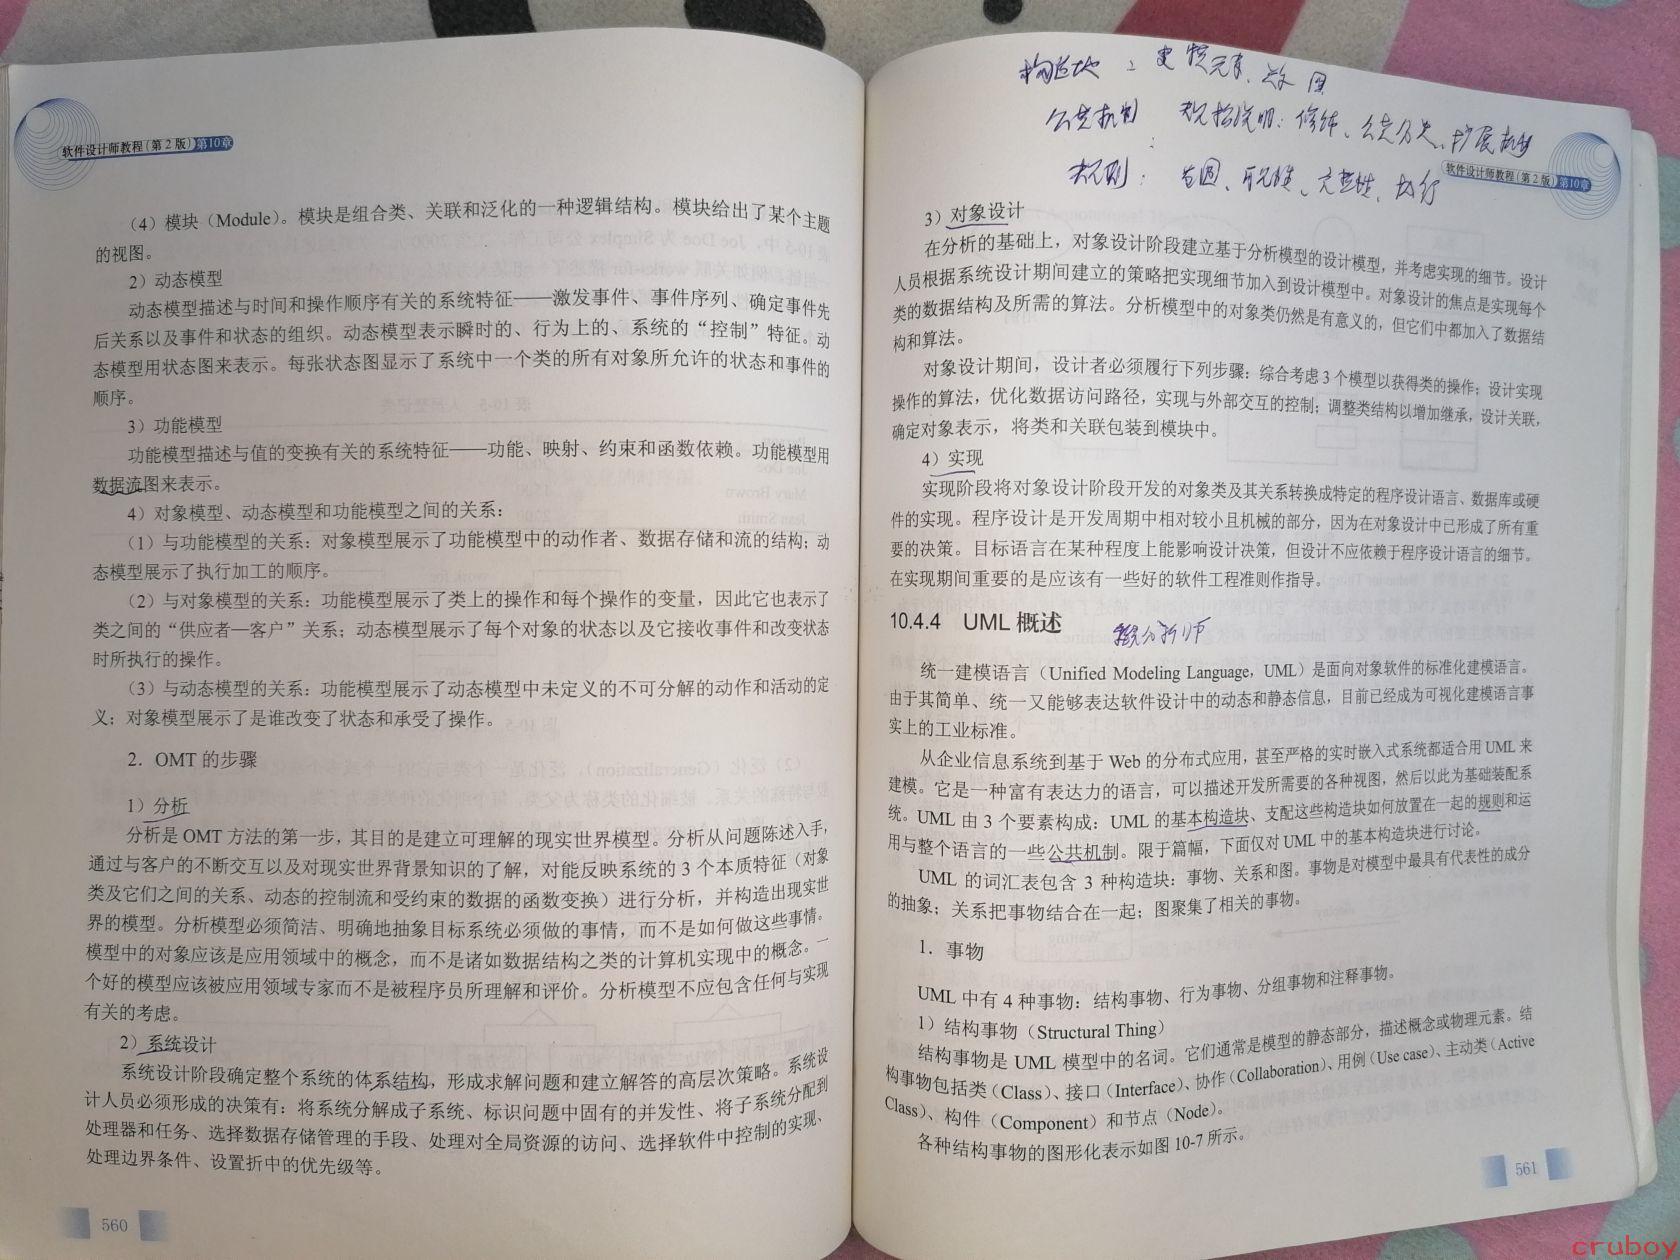 软件设计师教程(第2版) 第10章
（4）模块（Module）。模块是组合类、关联和泛化的一种逻辑结构。模块给出了某个主题
的视图。
2）动态模型
动态模型描述与时间和操作顺序有关的系统特征——激发事件、事件序列、确定事件先
后关系以及事件和状态的组织。动态模型表示瞬时的、行为上的、系统的“控制”特征。动
态模型用状态图来表示。每张状态图显示了系统中一个类的所有对象所允许的状态和事件的
顺序。
3）功能模型
功能模型描述与值的变换有关的系统特征——功能、映射、约束和函数依赖。功能模型用
数据流图来表示。
4）对象模型、动态模型和功能模型之间的关系：
（1）与功能模型的关系：对象模型展示了功能模型中的动作者、数据存储和流的结构；动
态模型展示了执行加工的顺序。
（2）与对象模型的关系：功能模型展示了类上的操作和每个操作的变量，因此它也表示了
类之间的“供应者—客户”关系；动态模型展示了每个对象的状态以及它接收事件和改变状态
时所执行的操作。
（3）与动态模型的关系：功能模型展示了动态模型中未定义的不可分解的动作和活动的定
义；对象模型展示了是谁改变了状态和承受了操作。
2．OMT 的步骤
1）分析
分析是 OMT 方法的第一步，其目的是建立可理解的现实世界模型。分析从问题陈述入手，
通过与客户的不断交互以及对现实世界背景知识的了解，对能反映系统的 3 个本质特征（对象
类及它们之间的关系、动态的控制流和受约束的数据的函数变换）进行分析，并构造出现实世
界的模型。分析模型必须简洁、明确地抽象目标系统必须做的事情，而不是如何做这些事情。
模型中的对象应该是应用领域中的概念，而不是诸如数据结构之类的计算机实现中的概念。一
个好的模型应该被应用领域专家而不是被程序员所理解和评价。分析模型不应包含任何与实现
有关的考虑。
2）系统设计
系统设计阶段确定整个系统的体系结构，形成求解问题和建立解答的高层次策略。系统设
计人员必须形成的决策有：将系统分解成子系统、标识问题中固有的并发性、将子系统分配到
处理器和任务、选择数据存储管理的手段、处理对全局资源的访问、选择软件中控制的实现、
处理边界条件、设置折中的优先级等。
560
构造地：事物元素、关系 图
公共机制 规格说明：修饰、公共分类、扩展机制
规则：范围、可见性、完整性、执行
软件设计师教程(第2版) 第10章
3）对象设计
在分析的基础上，对象设计阶段建立基于分析模型的设计模型，并考虑实现的细节。设计
人员根据系统设计期间建立的策略把实现细节加入到设计模型中。对象设计的焦点是实现每个
类的数据结构及所需的算法。分析模型中的对象类仍然是有意义的，但它们中都加入了数据结
构和算法。
对象设计期间，设计者必须履行下列步骤：综合考虑 3 个模型以获得类的操作；设计实现
操作的算法，优化数据访问路径，实现与外部交互的控制；调整类结构以增加继承，设计关联，
确定对象表示，将类和关联包装到模块中。
4）实现
实现阶段将对象设计阶段开发的对象类及其关系转换成特定的程序设计语言、数据库或硬
件的实现。程序设计是开发周期中相对较小且机械的部分，因为在对象设计中已形成了所有重
要的决策。目标语言在某种程度上能影响设计决策，但设计不应依赖于程序设计语言的细节。
在实现期间重要的是应该有一些好的软件工程准则作指导。
10.4.4 UML 概述
分析师
统一建模语言（Unified Modeling Language，UML）是面向对象软件的标准化建模语言。
由于其简单、统一又能够表达软件设计中的动态和静态信息，目前已经成为可视化建模语言事
实上的工业标准。
从企业信息系统到基于 Web 的分布式应用，甚至严格的实时嵌入式系统都适合用 UML 来
建模。它是一种富有表达力的语言，可以描述开发所需要的各种视图，然后以此为基础装配系
统。UML 由 3 个要素构成：UML 的基本构造块、支配这些构造块如何放置在一起的规则和运
用与整个语言的一些公共机制。限于篇幅，下面仅对 UML 中的基本构造块进行讨论。
UML 的词汇表包含 3 种构造块：事物、关系和图。事物是对模型中最具有代表性的成分
的抽象；关系把事物结合在一起；图聚集了相关的事物。
1．事物
UML 中有 4 种事物：结构事物、行为事物、分组事物和注释事物。
1）结构事物（Structural Thing）
结构事物是 UML 模型中的名词。它们通常是模型的静态部分，描述概念或物理元素。结
构事物包括类（Class）、接口（Interface）、协作（Collaboration）、用例（Use case）、主动类（Active
Class）、构件（Component）和节点（Node）。
各种结构事物的图形化表示如图 10-7 所示。
561
cruboy